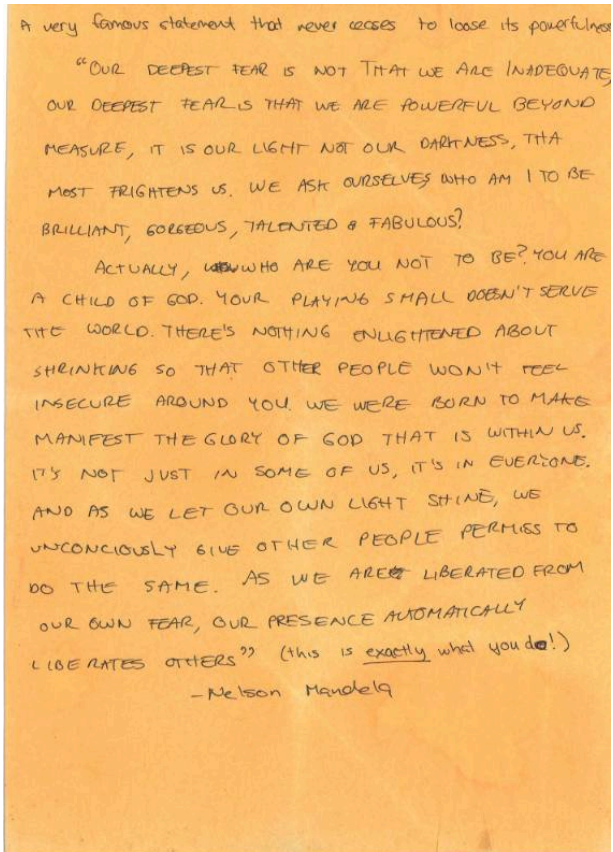 A very famous statement that never ceases to loose its powerfulness
"OUR DEEPEST FEAR IS NOT THAT WE ARE INADEQUATE,
OUR DEEPEST FEAR IS THAT WE ARE POWERFUL BEYOND
MEASURE, IT IS OUR LIGHT NOT OUR DARKNESS, THA
MOST FRIGHTENS US. WE ASK OURSELVES, WHO AM I TO BE
BRILLIANT, GORGEOUS, TALENTED & FABULOUS?
ACTUALLY, WHO ARE YOU NOT TO BE? YOU ARE
A CHILD OF GOD. YOUR PLAYING SMALL DOESN'T SERVE
THE WORLD. THERE'S NOTHING ENLIGHTENED ABOUT
SHRINKING SO THAT OTHER PEOPLE WON'T FEEL
INSECURE AROUND YOU. WE WERE BORN TO MAKE
MANIFEST THE GLORY OF GOD THAT IS WITHIN US.
IT'S NOT JUST IN SOME OF US, IT'S IN EVERYONE.
AND AS WE LET OUR OWN LIGHT SHINE, WE
UNCONCIOUSLY GIVE OTHER PEOPLE PERMISS TO
DO THE SAME. AS WE ARE LIBERATED FROM
OUR OWN FEAR, OUR PRESENCE AUTOMATICALLY
LIBERATES OTHERS" (this is exactly what you do!)
- Nelson Mandela